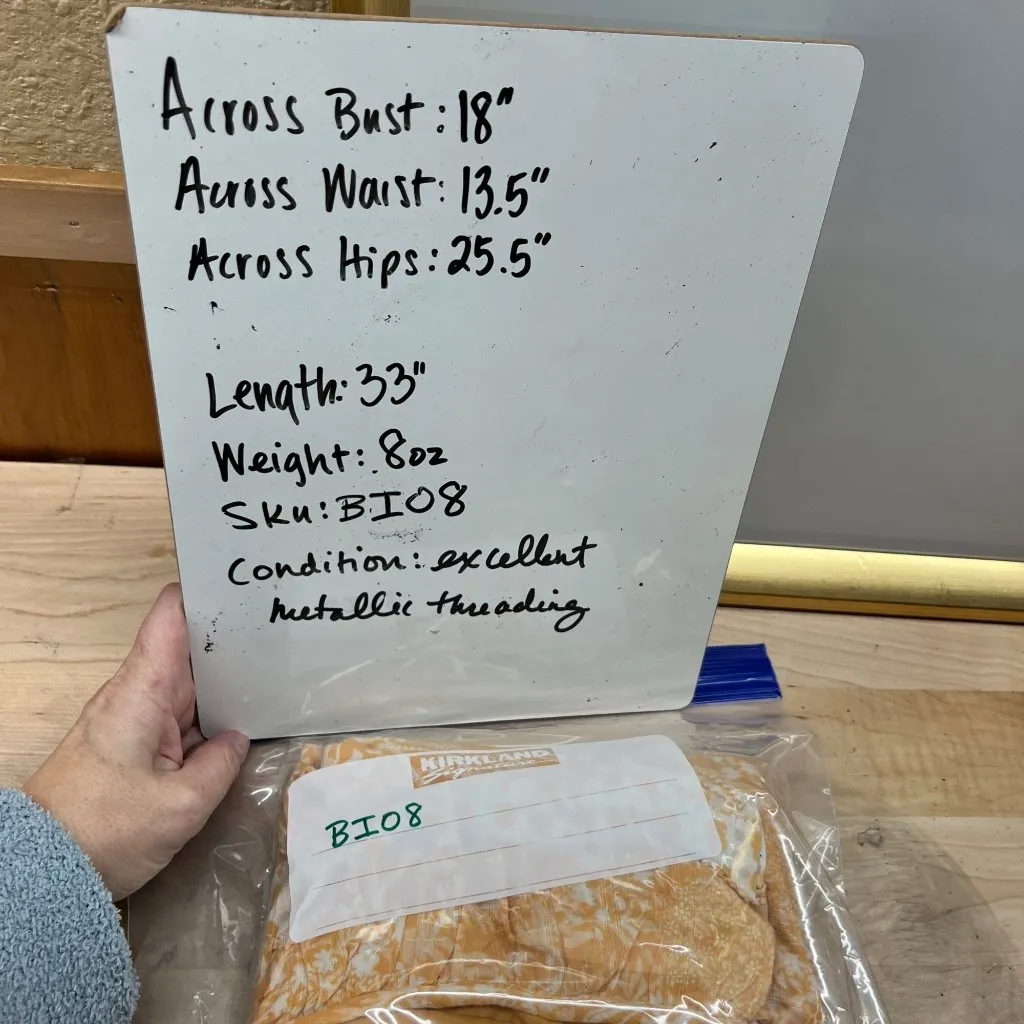 Across Bust: 18"
Across Waist: 13.5"
Across Hips: 25.5"
Length: 33"
Weight: 8oz
Sku: BIO8
Condition: excellent
metallic threading
KIRKLAND
Signature
BIO8